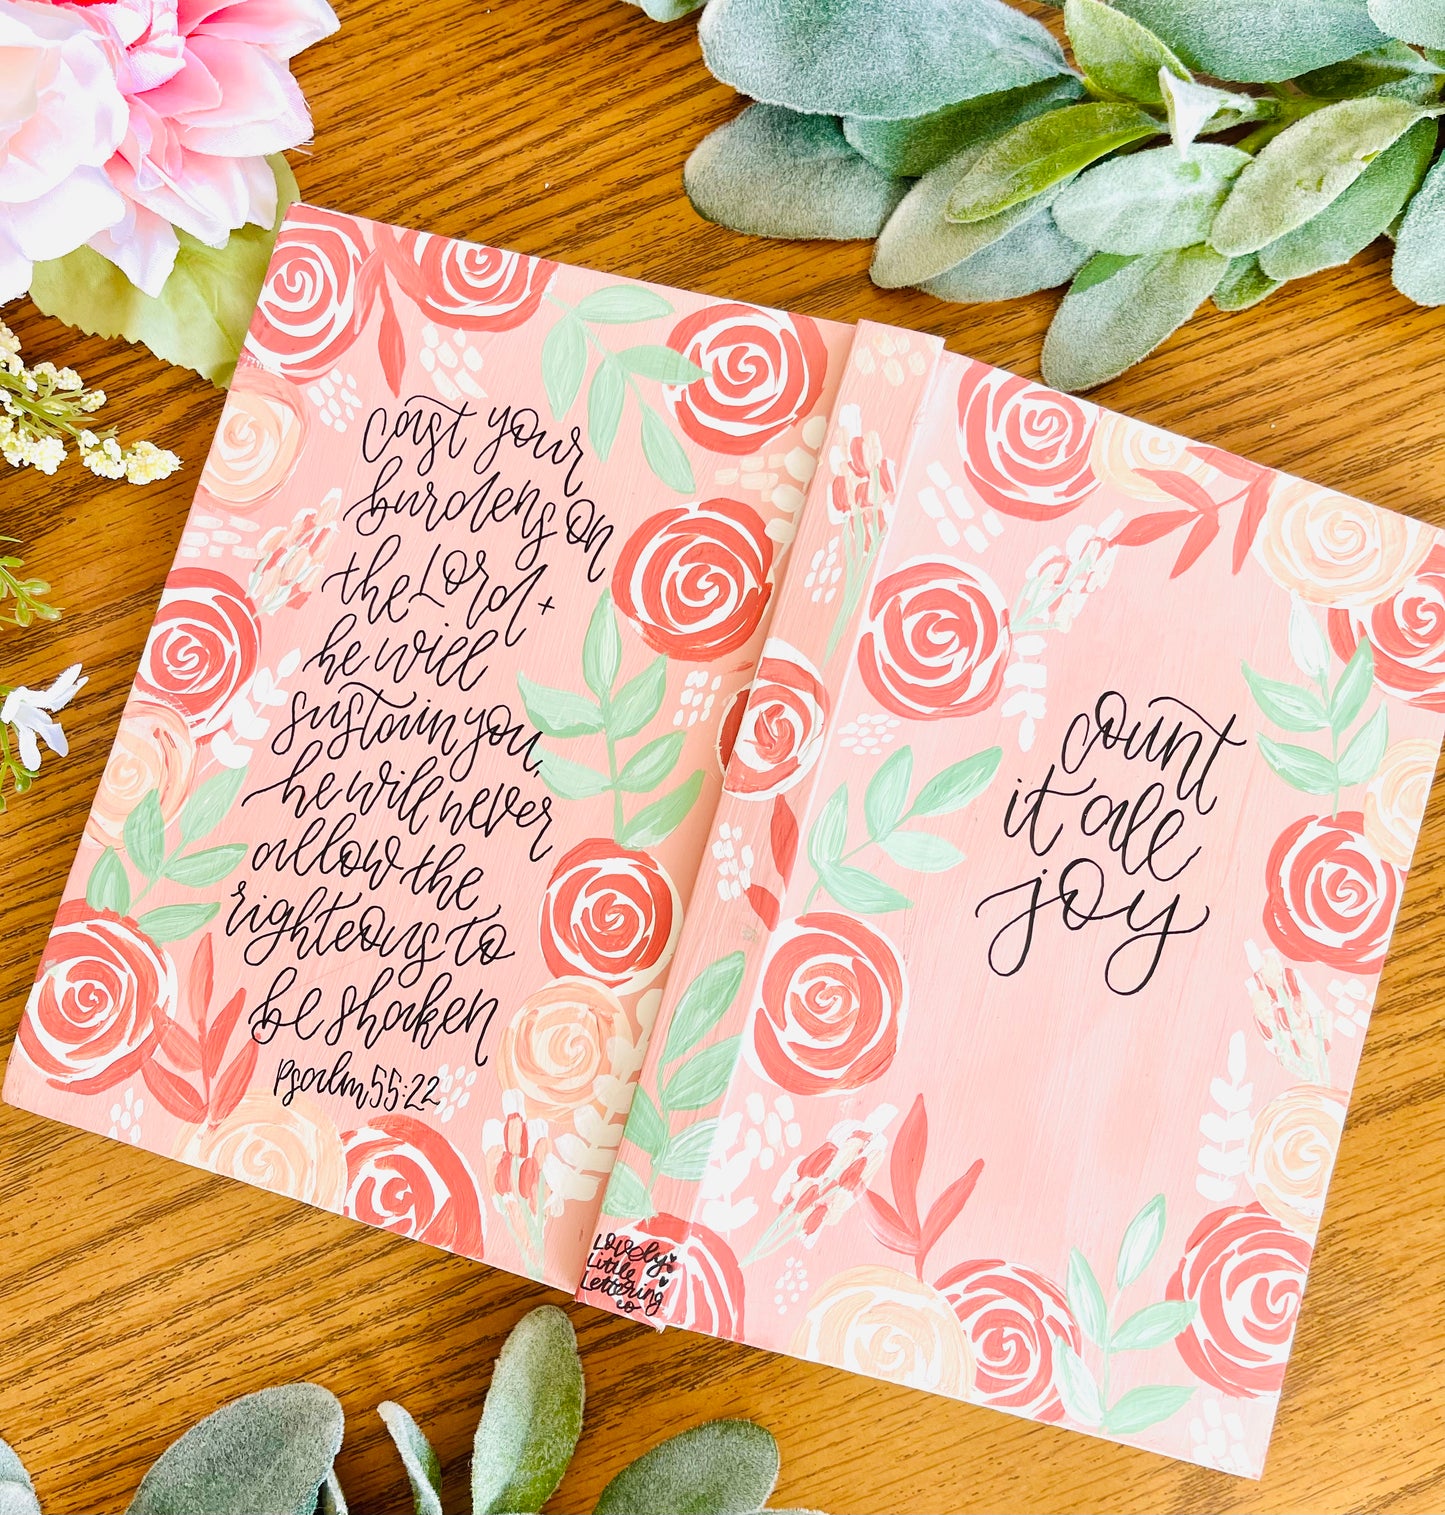 cast your
burdens on
the Lord +
he will
sustain you,
he will never
allow the
righteous to
be shaken
Psalm 55:22
count
it all
joy
Lovely
Little
Lettering
co